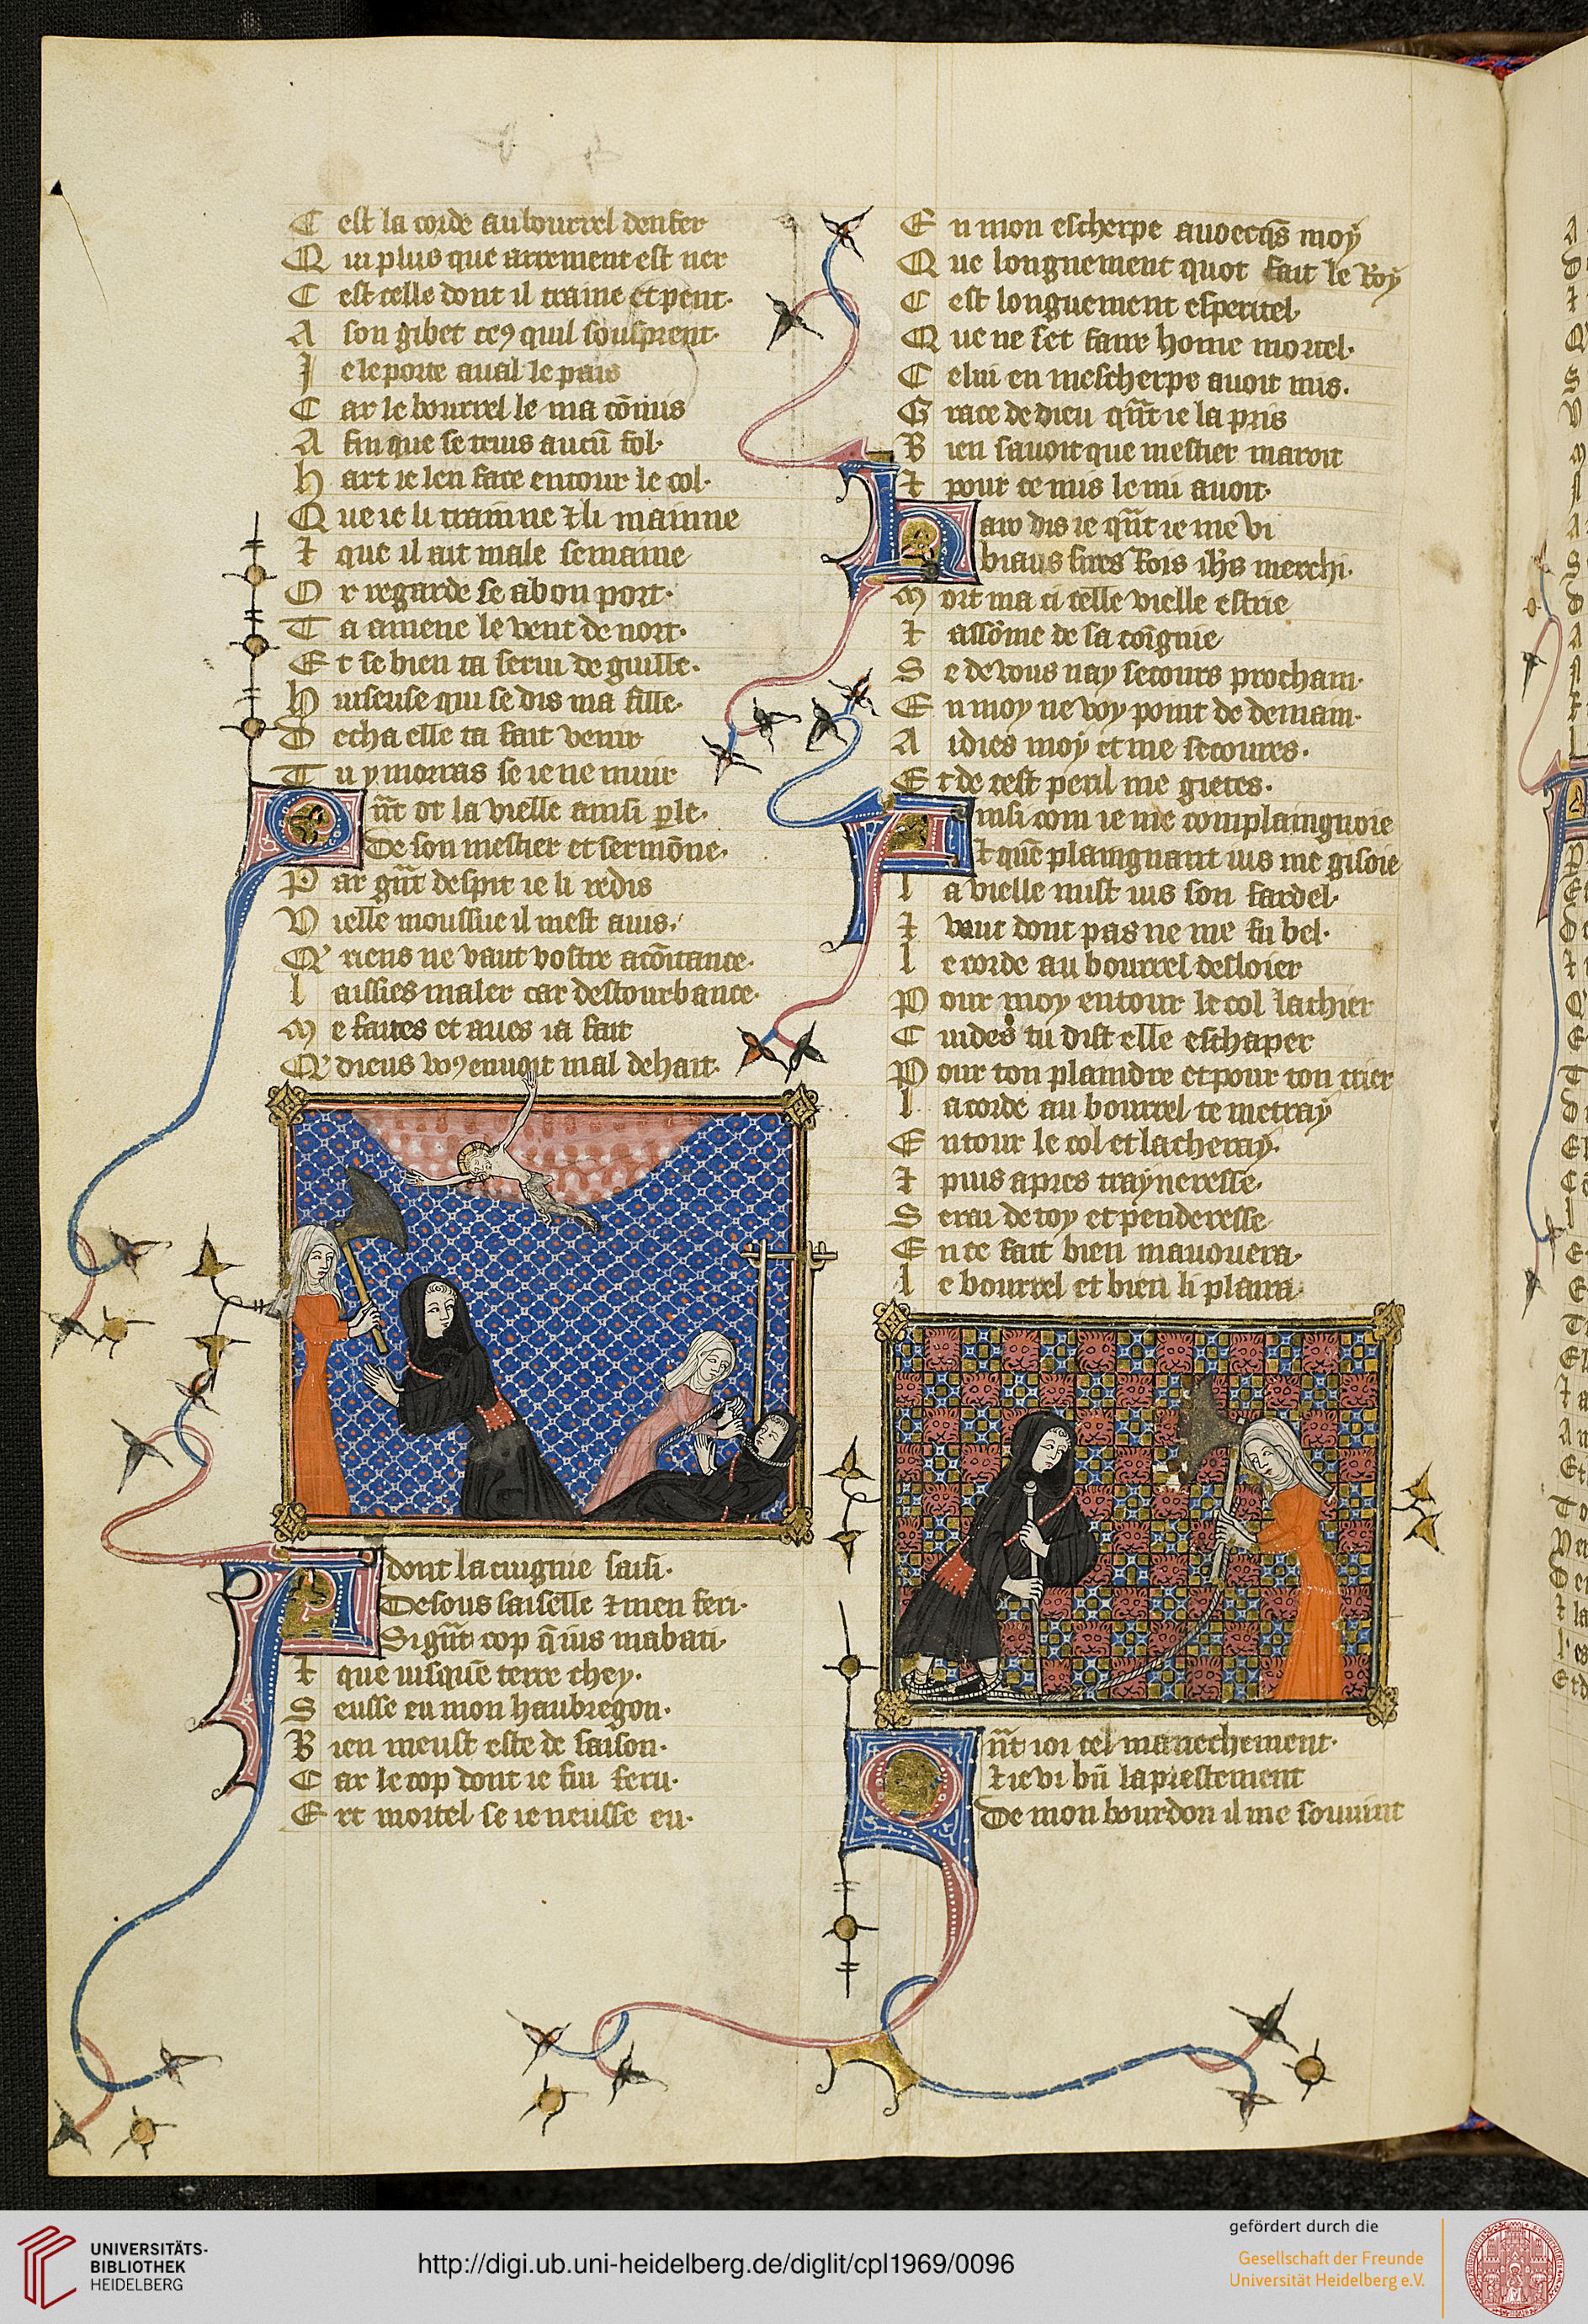 C est la corde au bourrel denfer
Q ui plus que arrement est ner
C est celle dont il traine et pent.
A son gibet ceꝯ quil sousprent.
J e le porte aual le pais
C ar le bourrel le ma cōmis
A fin que se truis aucū fol.
h art ie len face entour le col.
Q ue ie li trainne ⁊ li mainne
⁊ que il ait male semaine
O r regarde se a bon port.
T a amene le vent de nort.
E t se bien ta serui de guille.
h uiseuse qui se dis ma fille.
D echa elle ta fait venir
T u y morras se ie ne muir
Qn̄t ot la vielle ainsi ꝑle.
De son mestier et sermōne.
P ar gn̄t despit ie li redis
V ielle moussue il mest auis.
Q' riens ne vaut vostre acōitance.
l aissies maler car destourbance.
M e faites et aues ia fait
Q' dieus voꝯ enuoit mal dehait.
A dont la cuignie saisi.
Desous saisselle ⁊ men feri.
Si gn̄t cop q̄ ius mabati.
⁊ que iusquē terre chey.
S eusse eu mon haubregon.
B ien meust este de saison.
C ar le cop dont ie fui feru.
E rt mortel se ie neusse eu.
E n mon escherpe auoecq̄s moy
Q ue longnement quot fait le Roy
C est longuement esperitel.
Q ue ne set faire home mortel.
C elui en mescherpe auoit mis.
G race de dieu qn̄t ie la pris
B ien sauoit que mestier maroit
⁊ pour ce mis le mi auoit.
Haro dis ie qn̄t ie me vi
biaus sires Rois ih̄s merchi.
M ort ma ci celle vielle estrie
⁊ assōme de sa coignie
S e de vous nay secours prochain.
E n moy ne voy point de demain.
A idies moy et me secoures.
E t de cest peril me gietes.
Ainsi com ie me complaingnoie
⁊ quē plaingnant ius me gisoie
l a vielle mist ius son fardel.
⁊ vaut dont pas ne me fu bel.
l e corde au bourrel desloier
P our moy entour le col lachier
C uides tu dist elle eschaper
P our ton plaindre et pour ton crier
l a corde au bourrel te metray
E ntour le col et lacheray.
⁊ puis apres trayneresse.
S erai de toy et penderesse
E n ce fait bien mauouera.
l e bourrel et bien li plaira.
Qn̄t ioi cel manechement.
⁊ ie vi bn̄ laprestement
De mon bourdon il me souuint
UNIVERSITÄTS-
BIBLIOTHEK
HEIDELBERG
http://digi.ub.uni-heidelberg.de/diglit/cpl1969/0096
gefördert durch die
Gesellschaft der Freunde
Universität Heidelberg e.V.